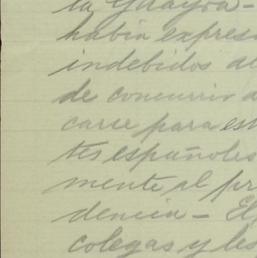 la Guayra-
había expres
indebidos a
de concurrir a
carse para es
tes españoles
mente al pr
dencia- El
colegas y les